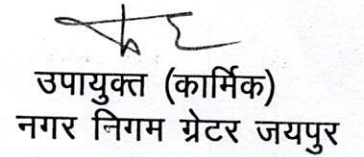 उपायुक्त (कार्मिक)
नगर निगम ग्रेटर जयपुर